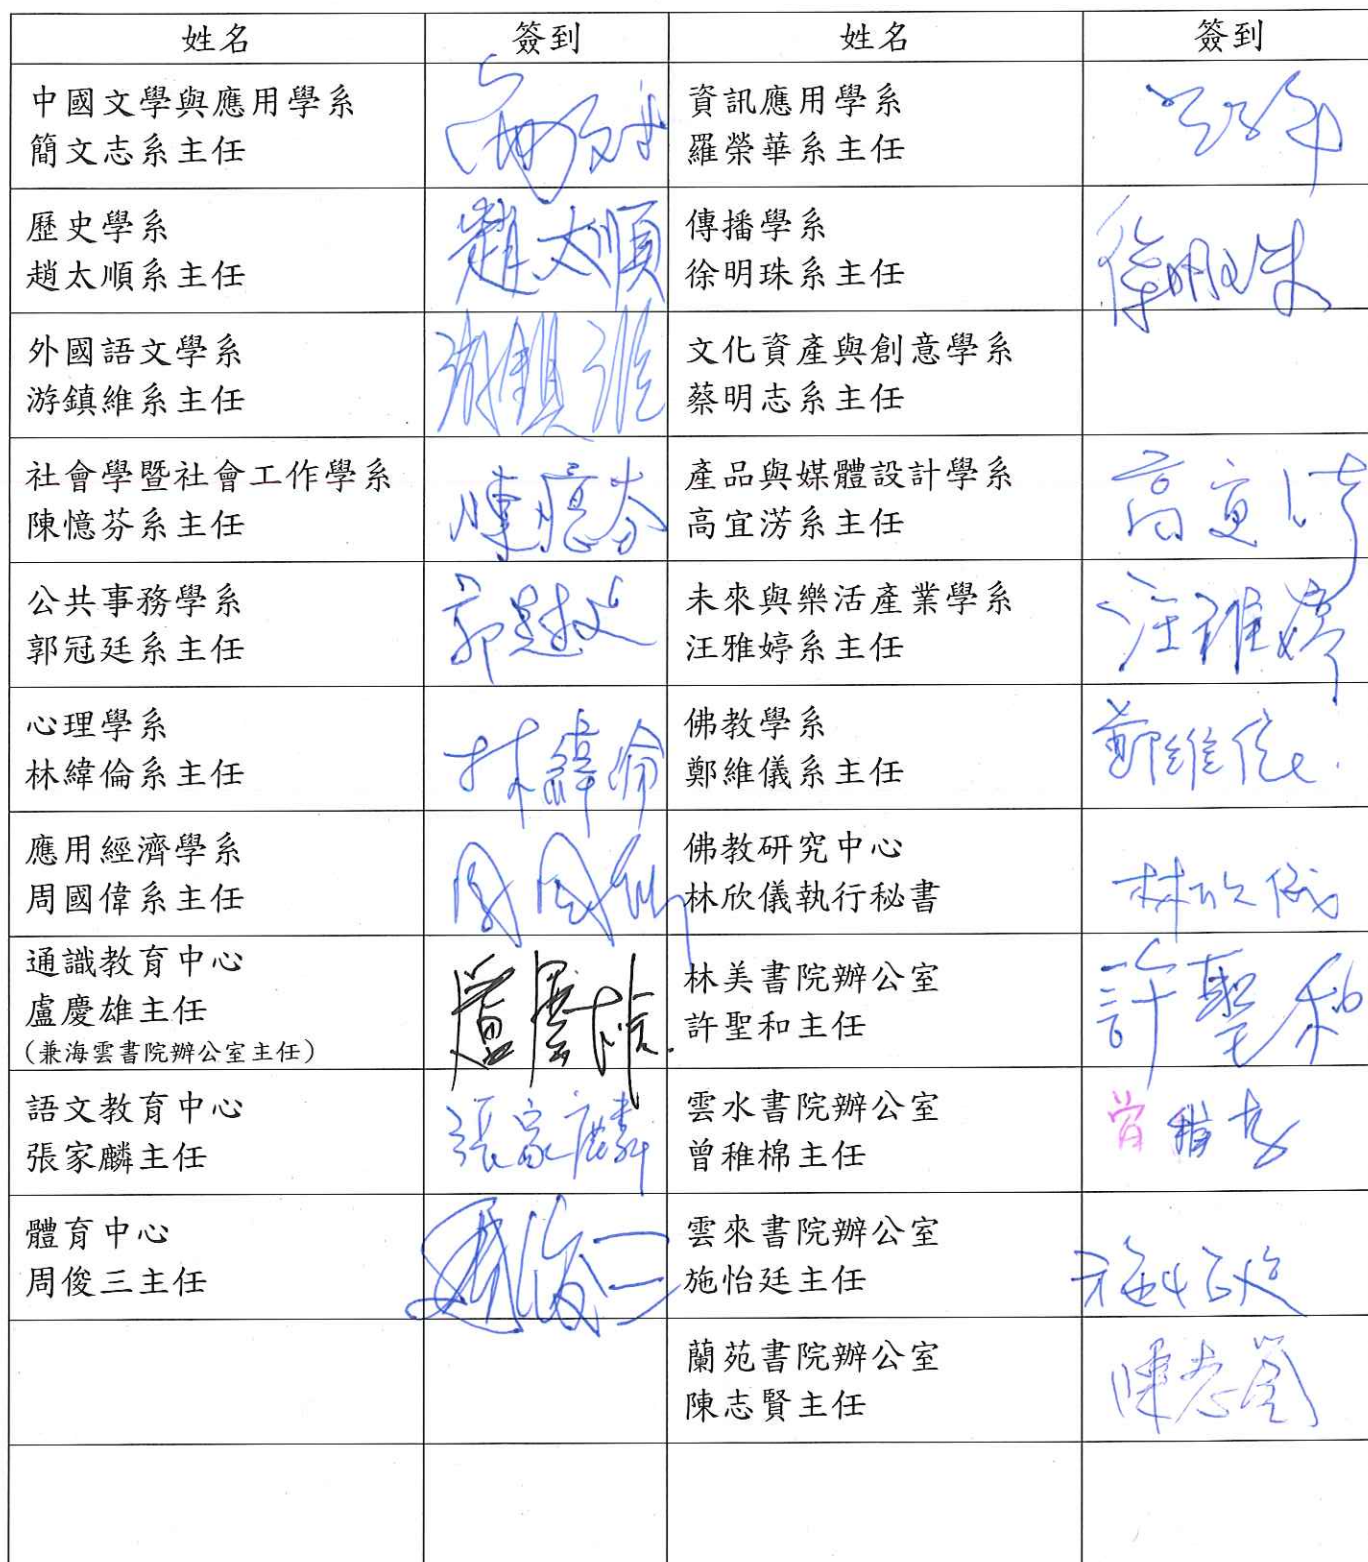 姓名 簽到 姓名 簽到
中國文學與應用學系
簡文志系主任
資訊應用學系
羅榮華系主任
歷史學系
趙太順系主任
趙太順
傳播學系
徐明珠系主任
徐明珠
外國語文學系
游鎮維系主任
游鎮維
文化資產與創意學系
蔡明志系主任
社會學暨社會工作學系
陳憶芬系主任
陳憶芬
產品與媒體設計學系
高宜淓系主任
高宜淓
公共事務學系
郭冠廷系主任
未來與樂活產業學系
汪雅婷系主任
汪雅婷
心理學系
林緯倫系主任
林緯倫
佛教學系
鄭維儀系主任
鄭維儀
應用經濟學系
周國偉系主任
周國偉
佛教研究中心
林欣儀執行秘書
林欣儀
通識教育中心
盧慶雄主任
(兼海雲書院辦公室主任)
盧慶雄
林美書院辦公室
許聖和主任
許聖和
語文教育中心
張家麟主任
張家麟
雲水書院辦公室
曾稚棉主任
體育中心
周俊三主任
周俊三
雲來書院辦公室
施怡廷主任
施怡廷
蘭苑書院辦公室
陳志賢主任
陳志賢